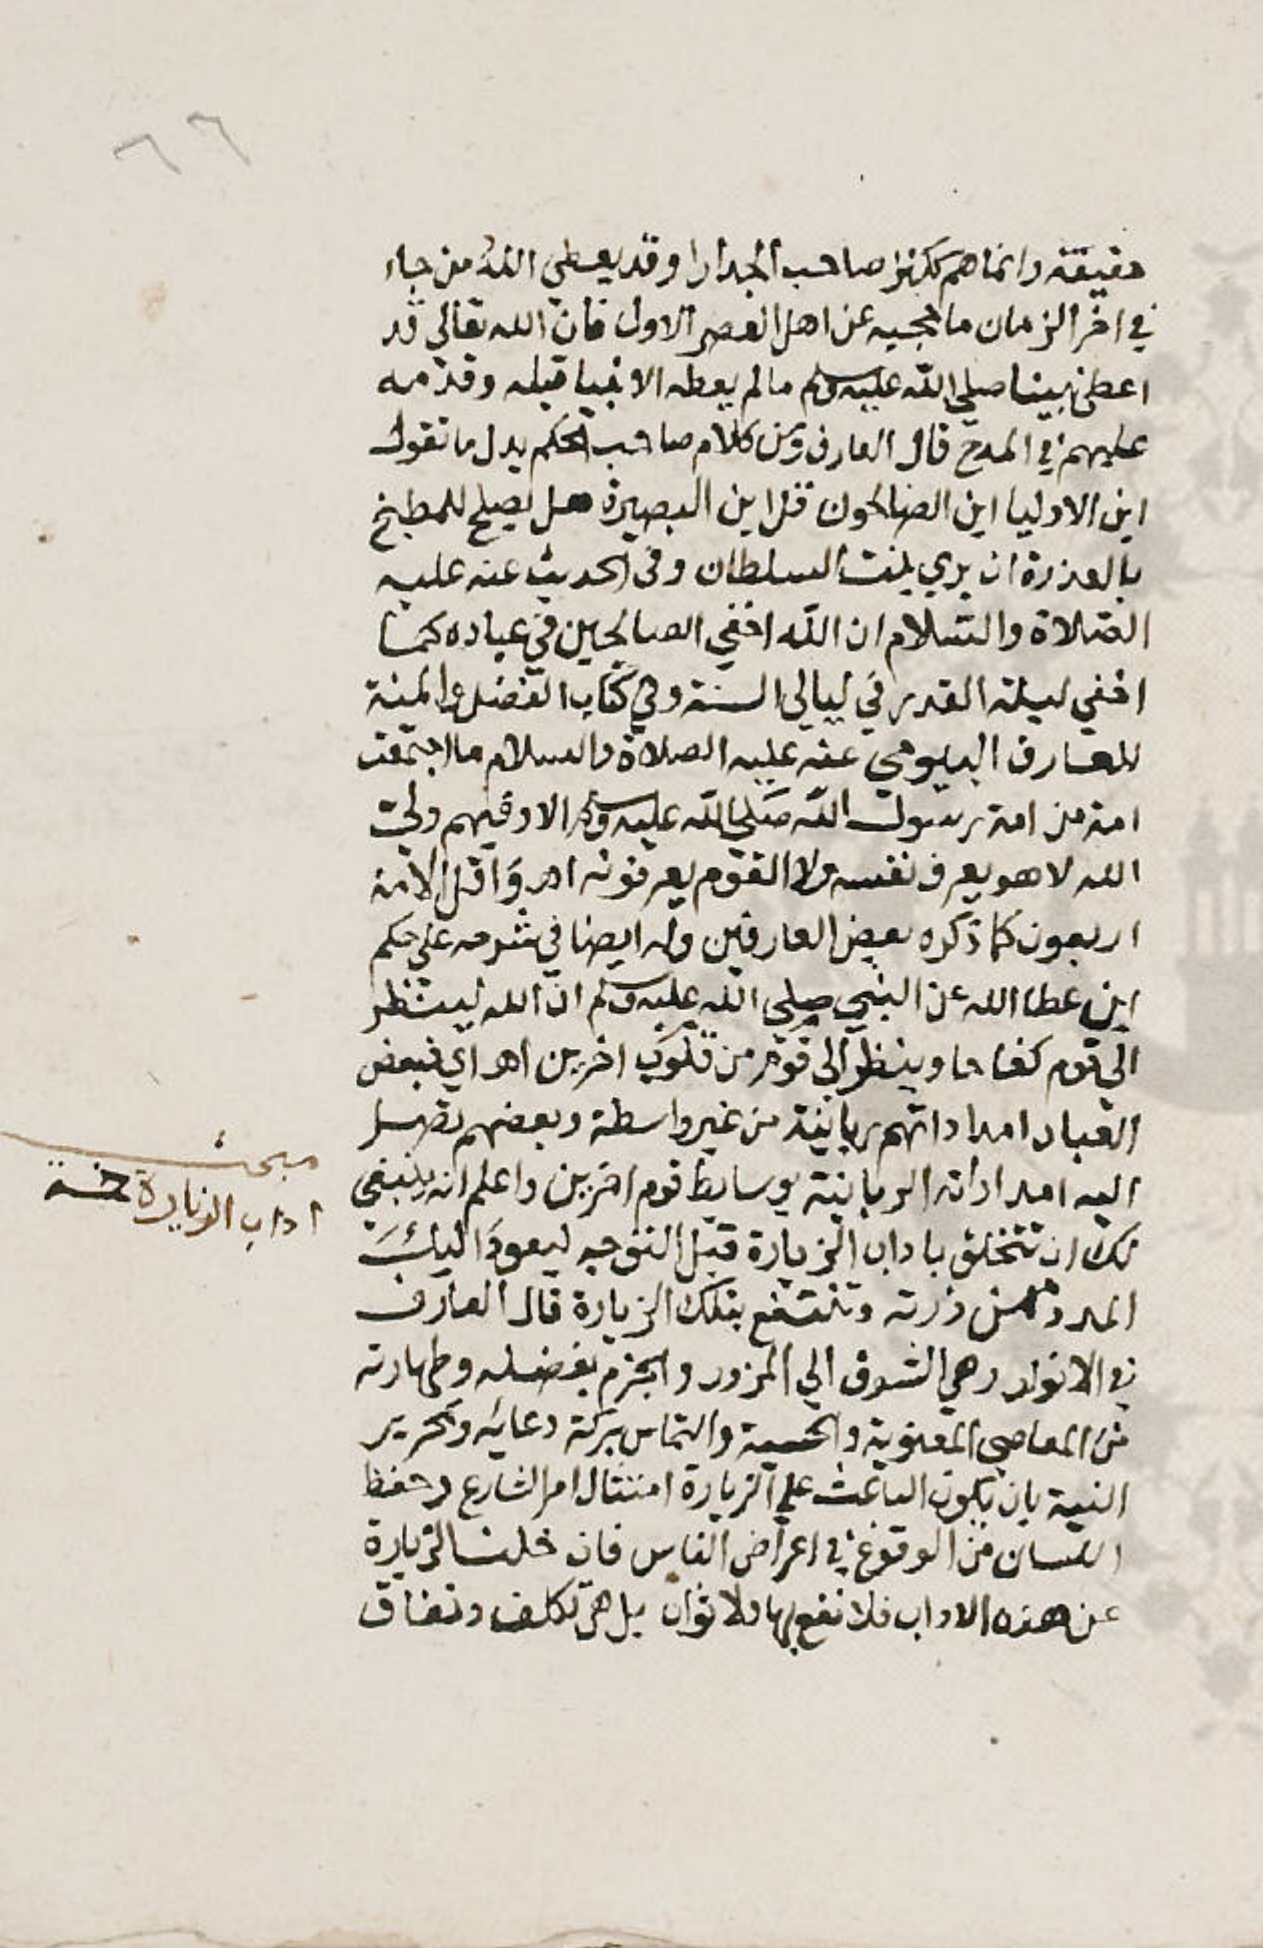 ٦٦
حقيقة وانما هم ككنز صاحب الجدار وقد يعطي الله من جاء
في اخر الزمان ما حجبه عن اهل العصر الاول فان الله تعالى قد
اعطى نبينا صلى الله عليه وسلم ما لم يعطه الانبيا قبله وقدمه
عليهم في المدح قال العارف ومن كلام صاحب الحكم بدل ما تقول
اين الاوليا اين الصالحون قل اين البصيرة هل يصلح للمطبخ
بالعذرة ان يري بنت السلطان وفى الحديث عنه عليه
الصلاة والسلام ان الله اخفي الصالحين في عباده كما
اخفي ليلة القدر في ليالي السنة وفي كتاب الفضل والمنة
للعارف البيومي عنه عليه الصلاة والسلام ما اجتمعت
امة من امة رسول الله صلي الله عليه وسلم الا وفيهم ولي
الله لا هو يعرف نفسه ولا القوم يعرفونه اهـ واقل الامة
اربعون كما ذكره بعض العارفين وله ايضا في شرحه على حكم
ابن عطا الله عن النبي صلى الله عليه وسلم ان الله لينظر
الى قوم كفاحا وينظر الى قوم من قلوب اخرين اهـ اي فبعض
العباد امداداتهم ربانية من غير واسطة وبعضهم تصل
اليه امداداته الربانية بوسايط قوم اخرين واعلم انه ينبغي
لك ان تتخلق باداب الزيارة قبل التوجه ليعود اليك
المدد ممن زرته وتنتفع بتلك الزيارة قال العارف
في الانوار وهي الشوق الي المزور والجزم بفضله وطهارته
من المعاصي المعنوية والحسية والتماس بركة دعائه وتحرير
النية بان يكون الباعث علي الزيارة امتثال امر الشارع وحفظ
اللسان من الوقوع في اعراض الناس فان خلت الزيارة
عن هذه الاداب فلا نفع بها ولا ثواب بل هي تكلف ونفاق
مبحث
اداب الزيارة